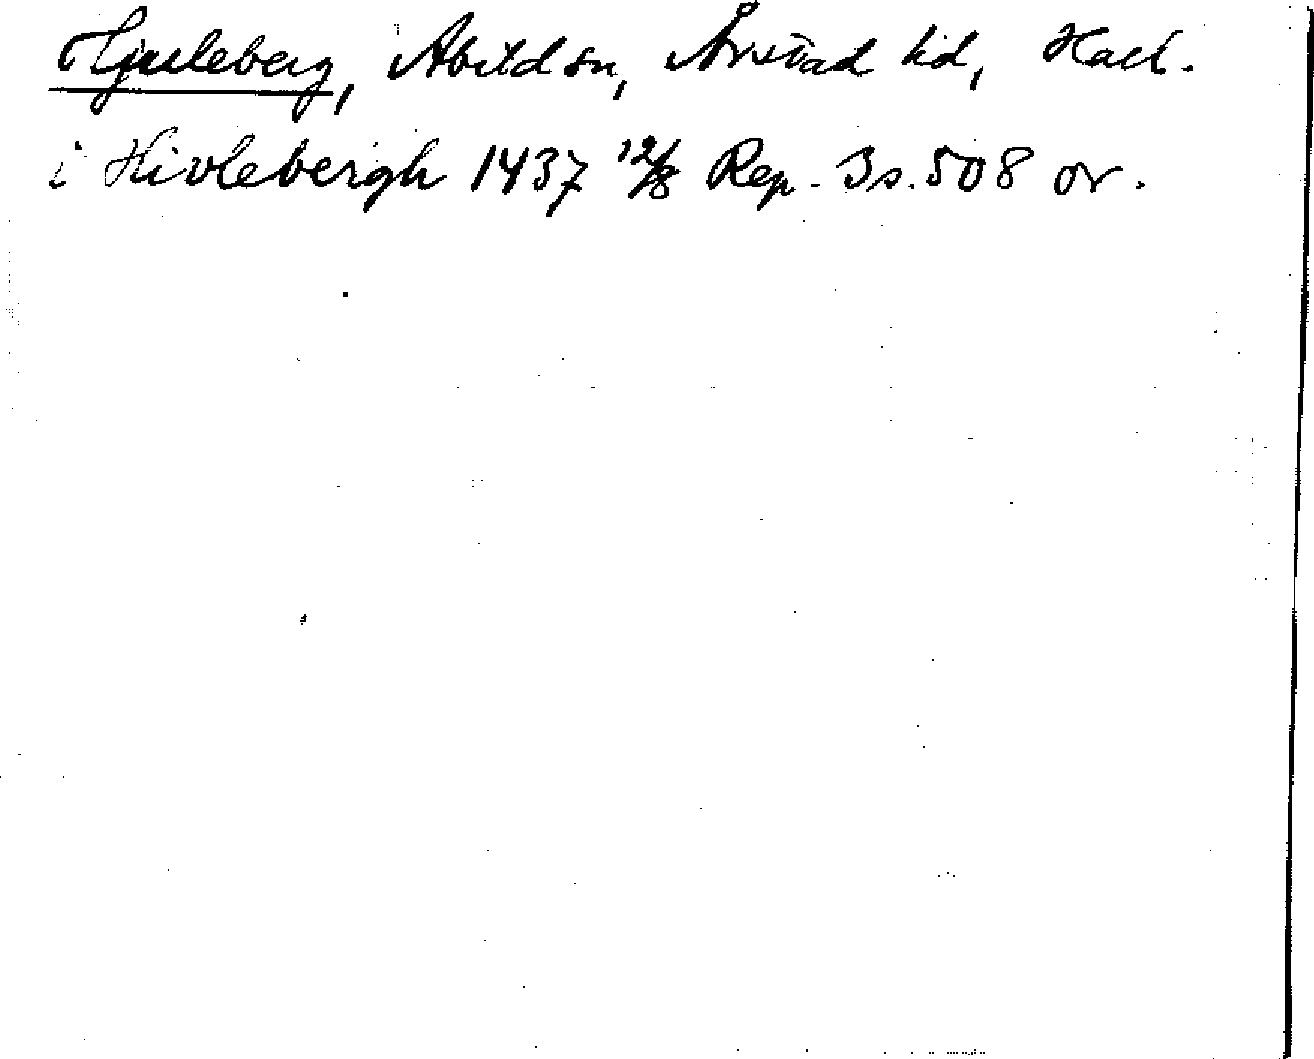 Hjuleberg, Abild sn, Årstad hd, Hall.
i Hivlebergh 1437 12/8 Rep. 3 s. 508 or.